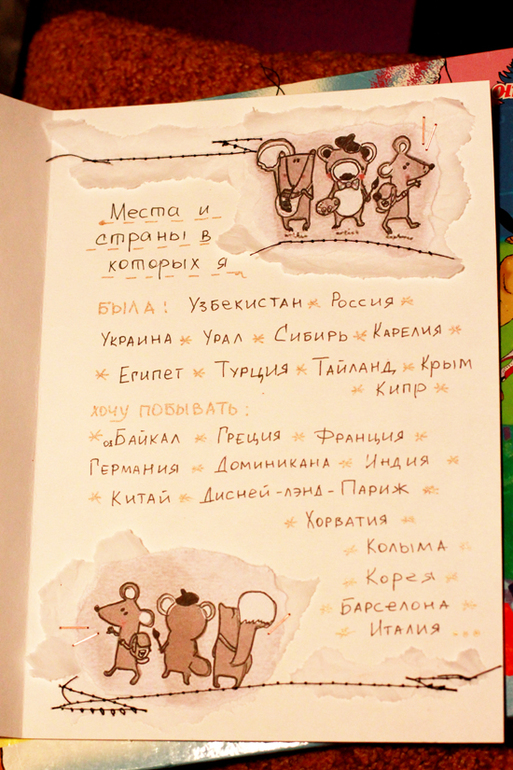 Места и
страны в
которых я
БЫЛА: УЗБЕКИСТАН * РОССИЯ *
УКРАИНА * УРАЛ * СИБИРЬ * КАРЕЛИЯ *
* ЕГИПЕТ * ТУРЦИЯ * ТАЙЛАНД * КРЫМ
* КИПР *
ХОЧУ ПОБЫВАТЬ:
* оз БАЙКАЛ * ГРЕЦИЯ * ФРАНЦИЯ *
ГЕРМАНИЯ * ДОМИНИКАНА * ИНДИЯ *
* КИТАЙ * ДИСНЕЙ-ЛЭНД-ПАРИЖ *
* ХОРВАТИЯ *
* КОЛЫМА *
* КОРЕЯ *
* БАРСЕЛОНА *
* ИТАЛИЯ ...